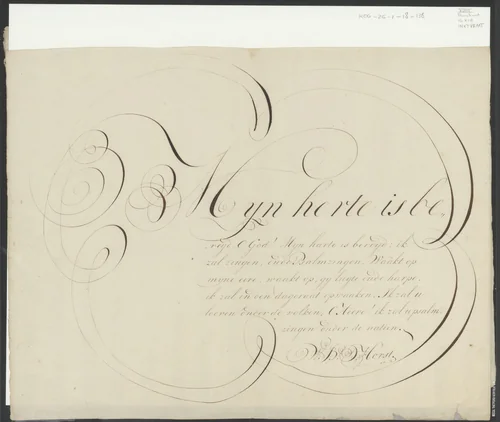 Myn herte is be,
reyd O God! Myn herte is bereyd; ik
zal zingen, ende Psalmzingen. Waakt op
myne eere, waakt op, gy luyte ende harpe,
ik zal in den dageraet opwaken. Ik zal u
looven onder de volken, O Heere! ik zal u psalm
zingen onder de natien.
Horst